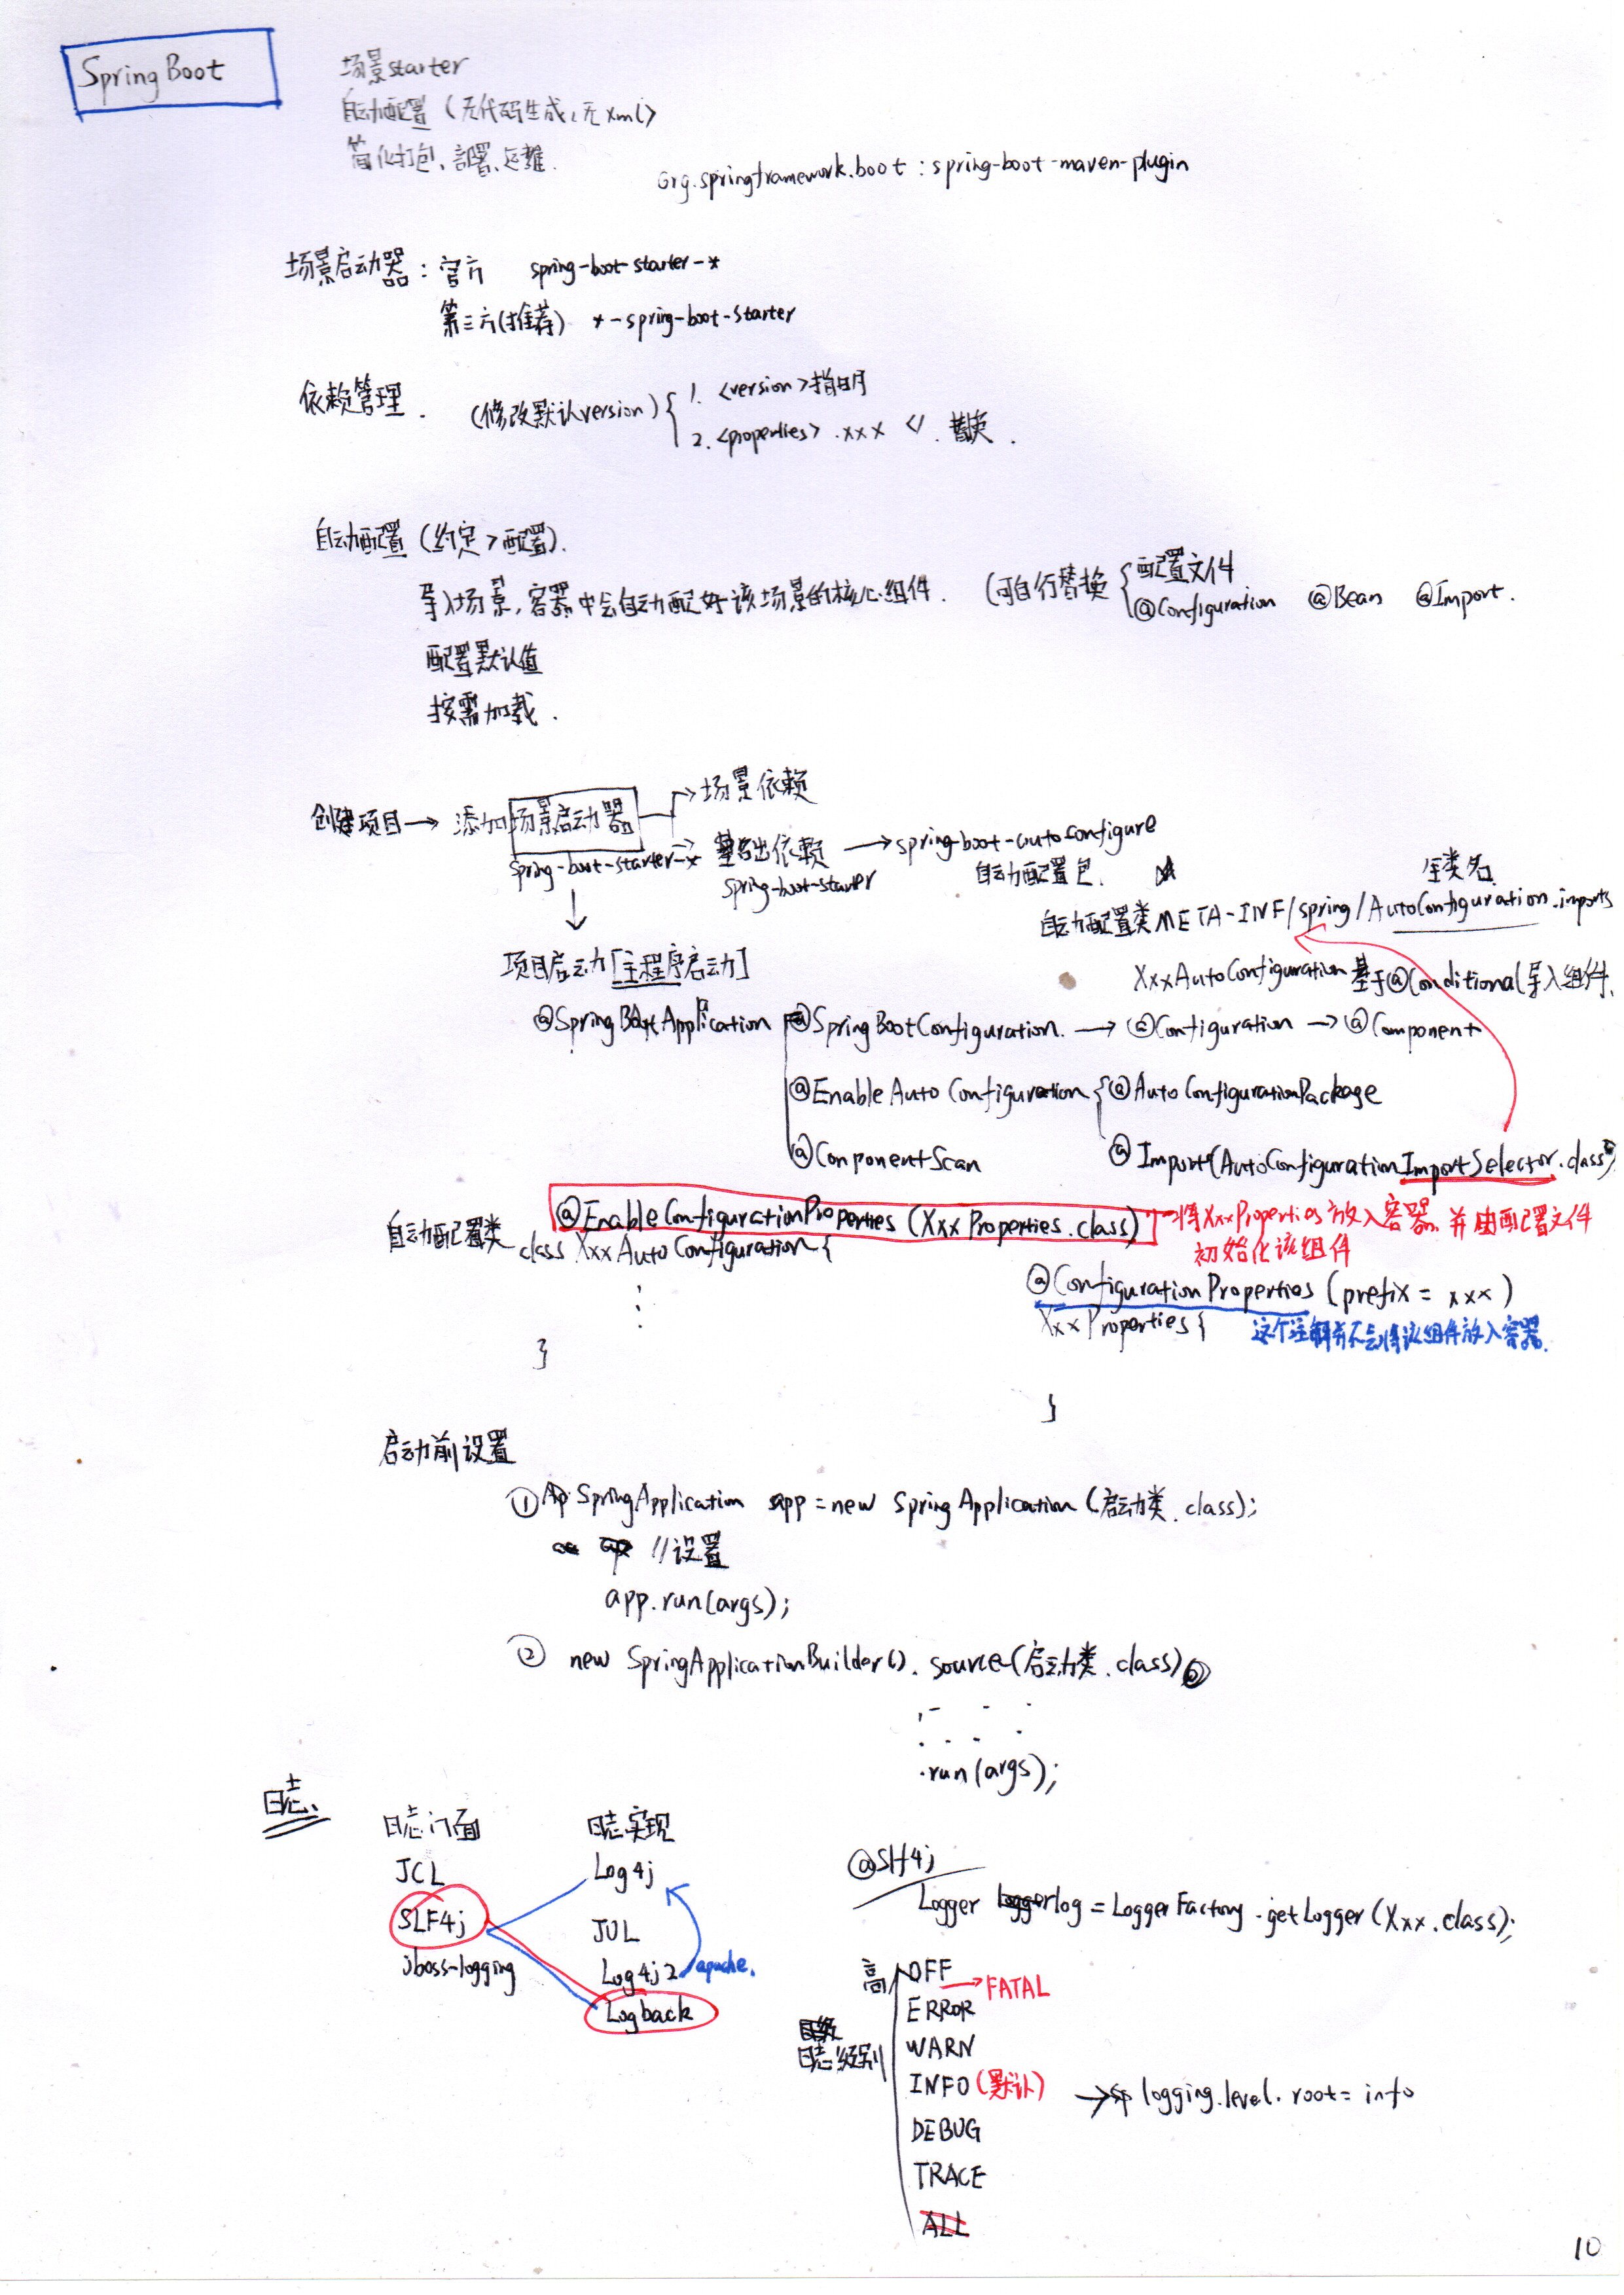 SpringBoot
场景starter
自动配置（无代码生成，无xml）
简化打包、部署、运维.
org.springframework.boot : spring-boot-maven-plugin
场景启动器：官方 spring-boot-starter-*
第三方(推荐) *-spring-boot-starter
依赖管理. (修改默认version) { 1. <version>指明
2. <properties> .xxx </. 替换.
自动配置 (约定>配置).
导入场景, 容器中会自动配好该场景的核心组件. (可自行替换 { 配置文件
@Configuration @Bean @Import.
配置默认值
按需加载.
创建项目 → 添加场景启动器 → 场景依赖
spring-boot-starter-* → 基础依赖 → spring-boot-autoconfigure
spring-boot-starter 自动配置包.
全类名
自动配置类 META-INF/spring/AutoConfiguration.imports
项目启动[主程序启动]
XxxAutoConfiguration 基于@Conditional导入组件.
@SpringBootApplication @SpringBootConfiguration. → @Configuration → @Component
@EnableAutoConfiguration { @AutoConfigurationPackage
@ComponentScan @Import(AutoConfigurationImportSelector.class)
@EnableConfigurationProperties (XxxProperties.class) 将XxxProperties放入容器 并由配置文件
初始化该组件
自动配置类 class XxxAutoConfiguration {
@ConfigurationProperties (prefix = xxx)
XxxProperties {
这个注解并不会将该组件放入容器.
}
}
启动前设置
① SpringApplication app = new SpringApplication (启动类.class);
//设置
app.run(args);
② new SpringApplicationBuilder(). source(启动类.class)
.run(args);
日志、
日志门面 日志实现
JCL Log4j
SLF4j JUL
jboss-logging Log4j2 apache.
Logback
@Slf4j
Logger log = LoggerFactory.getLogger(Xxx.class);
高 OFF → FATAL
ERROR
日志级别 WARN
INFO (默认) → logging.level.root = info
DEBUG
TRACE
ALL
10